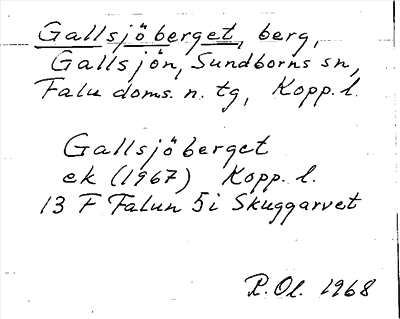 Gallsjöberget, berg,
Gallsjön, Sundborns sn,
Falu doms. n. tg, Kopp. l.
Gallsjöberget
ek (1967) Kopp. l.
13 F Falun 5i Skuggarvet
P. Ol. 1968